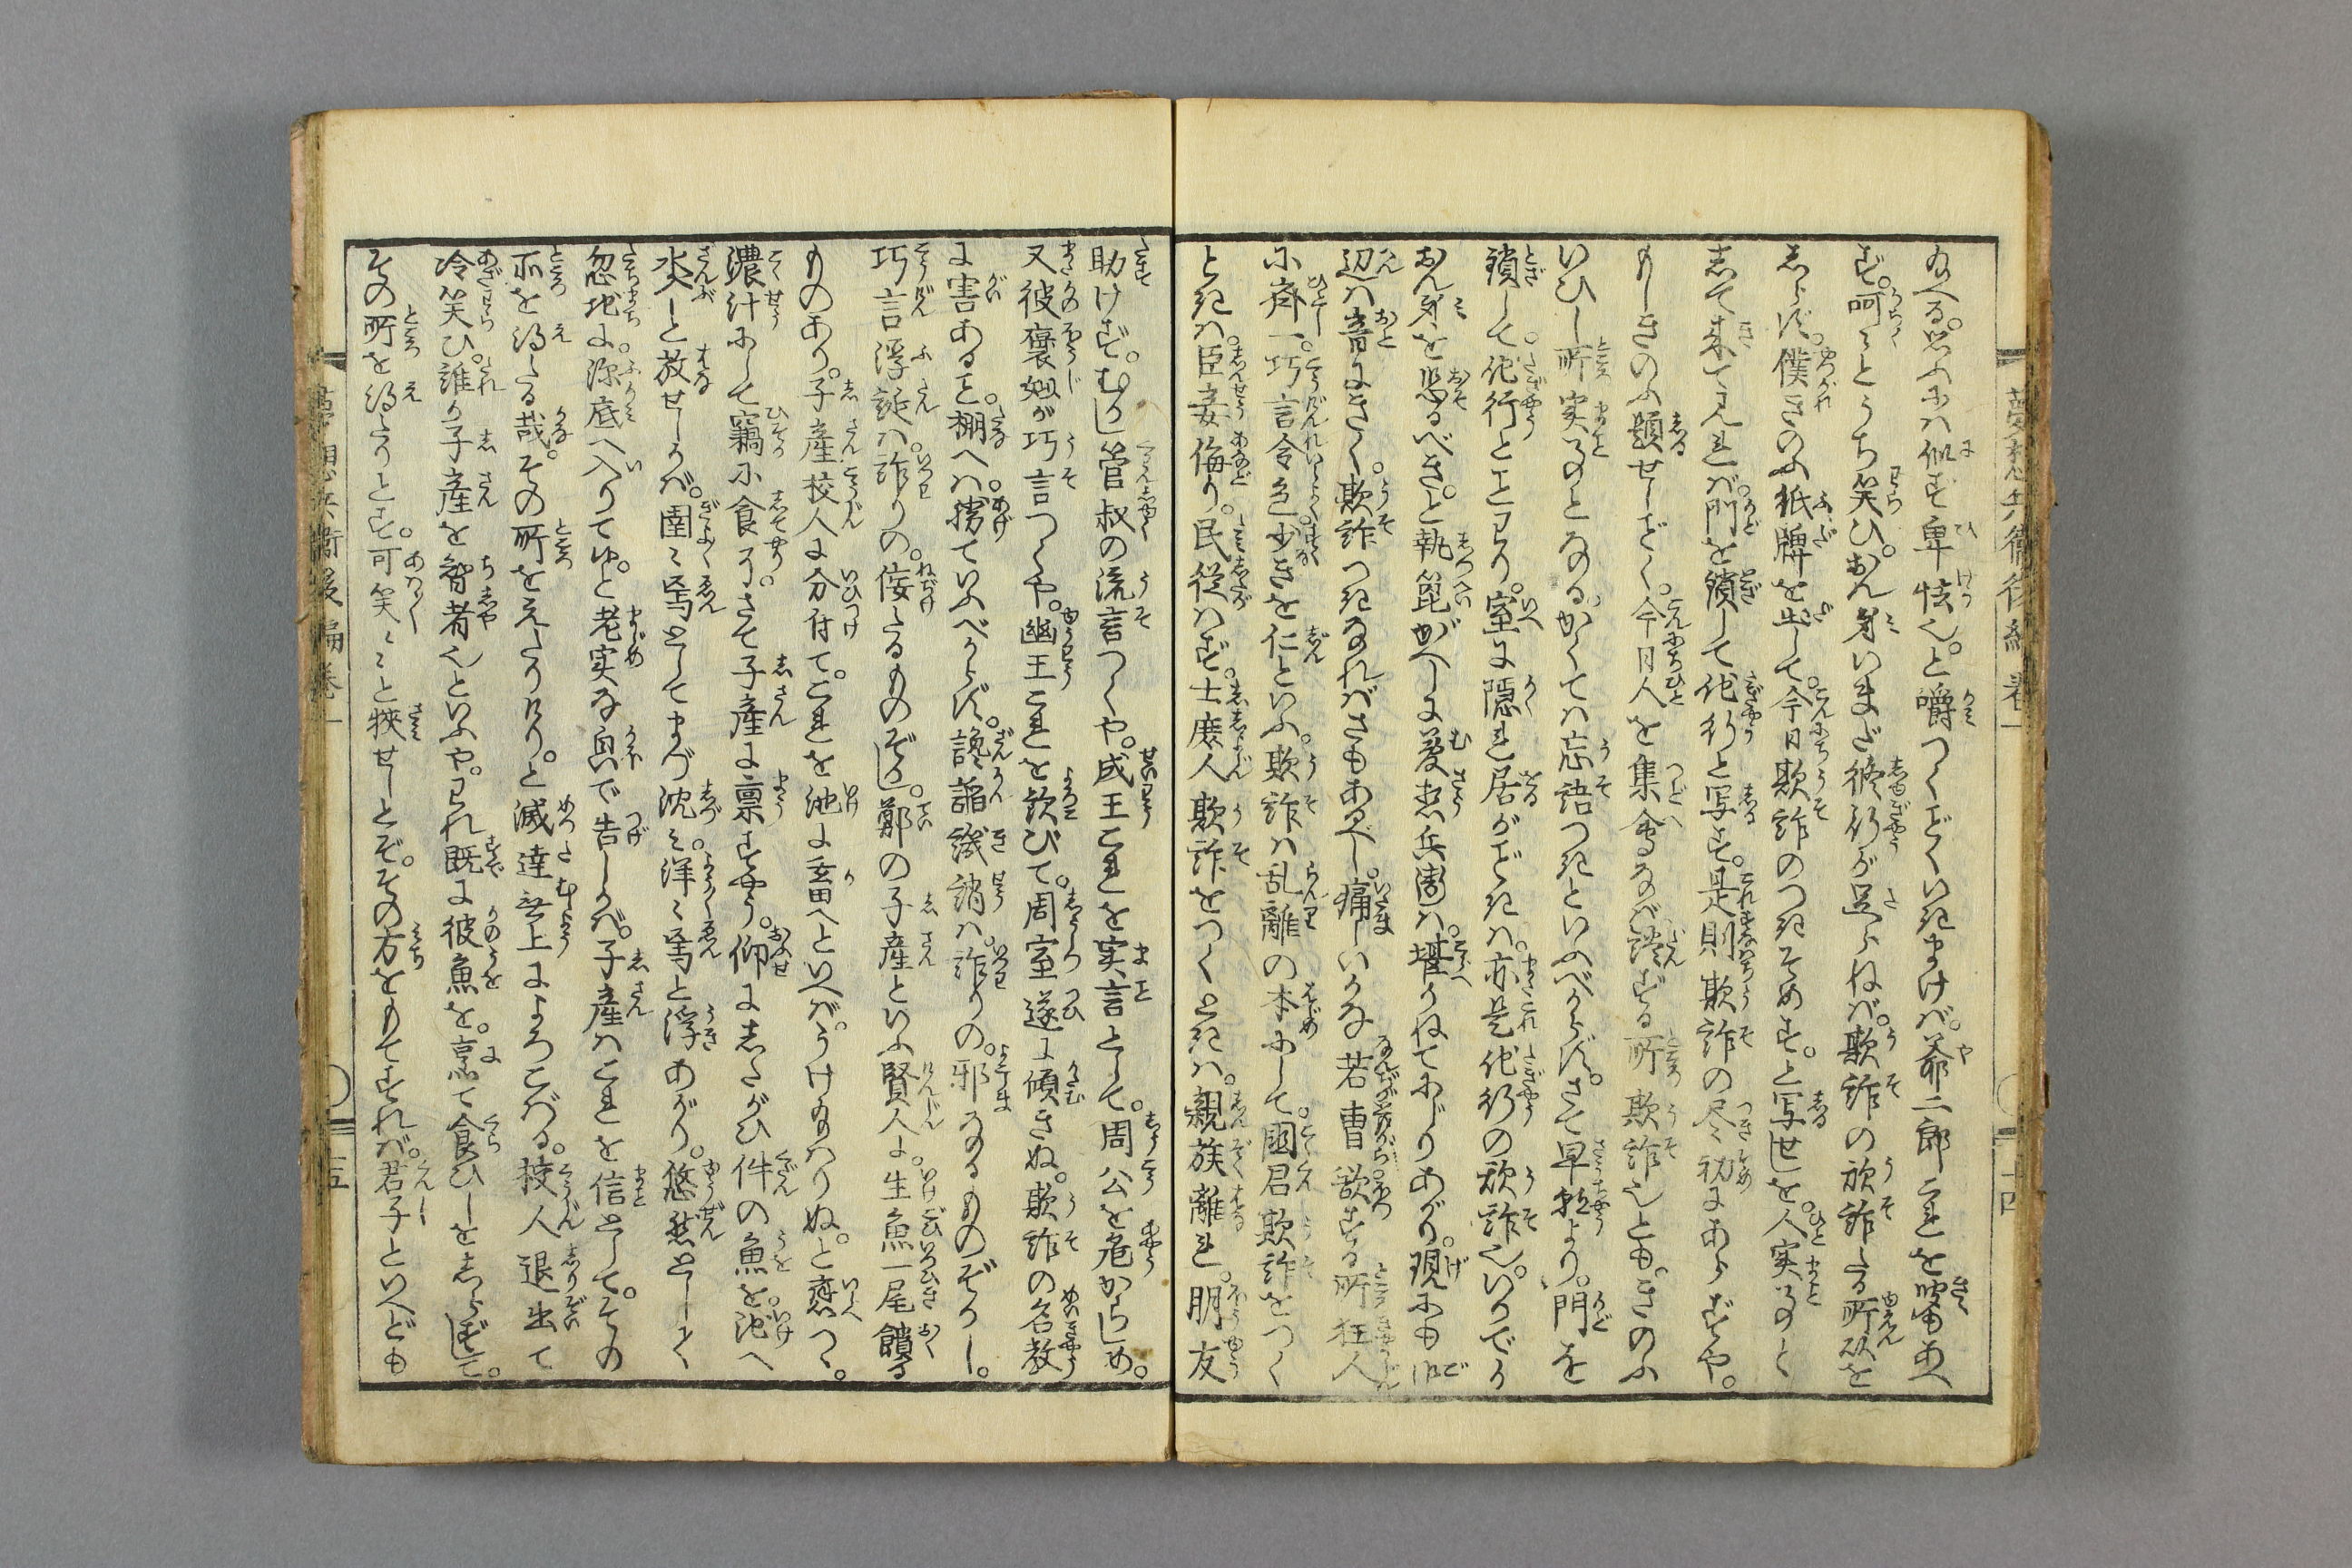 給へる。思ふには似ず卑怯也。と嚼つくごとくいきまけば。爺二郎これを聞あへ
ず。呵々とうち笑ひ。おん身いまだ修行が足らねば。欺詐の欺詐たる所以を
しらず。僕きのふ紙牌を出して。今日欺詐のつきぞめす。と写せしを。人実事とし
して来て見れば。門を鎖して他行と写す。是則欺詐の尽初にあらずや。
もしきのふ題せしごとく。今日人を集会なば。談ずる所欺詐也とも。きのふ
いひし所実事となる。かくては忘語つきといふべからず。さて早朝より。門を
鎖して。他行とことわり。室に隠れ居るがごときは。亦是他行の欺詐也。いかでか
おん身を恐るべき。と執篦がへしに夢想兵衛は。堪かねてにじりあがり。現にも
辺は音にきく。欺詐つきなればさもあるべし。痛しいかな若曹。欲する所狂人
に斉し。巧言令色少きを仁といふ。欺詐は乱離の本にして。国君欺詐をつく
ときは。臣妾侮り。民従はず。士庶人欺詐をつくときは。親族離れ。朋友
助けず。むかし管叔の流言つくや。成王これを実言として。周公を危からしめ。
又彼褒姒が巧言つくや。幽王これを歓びて。周室遂に傾きぬ。欺詐の名教
に害あること。棚へは揚ていふべからず。讒諂譏誚は。詐りの。邪なるものぞかし。
巧言浮誕は。詐りの。佞たるものぞかし。鄭の子産といふ賢人に。生魚一尾饋る
ものあり。子産校人に分付て。これを池に畜へといへば。うけ給はりぬ。と応つゝ。
濃汁にして竊に食ふ。さて子産に禀すやう。仰にしたがひ件の魚を。池へ
ざんぶと放せしかば。圉々焉としてまづ沈み。洋々焉と浮あがり。悠然として
忽地に。深底へ入りてゆ。と老実な面で告しかば。子産はこれを信として。その
所を得たる哉。その所をえたりけり。と滅法無上によろこばる。校人退出て
冷笑ひ。誰か子産を智者也といふや。われ既に彼魚を。烹て食ひしをしらずして。
その所を得たりとす。可笑々々と狭せしとぞ。その方をもてすれば。君子といへども
夢想兵衛後編巻一
十四
夢想兵衛後編巻一
十五